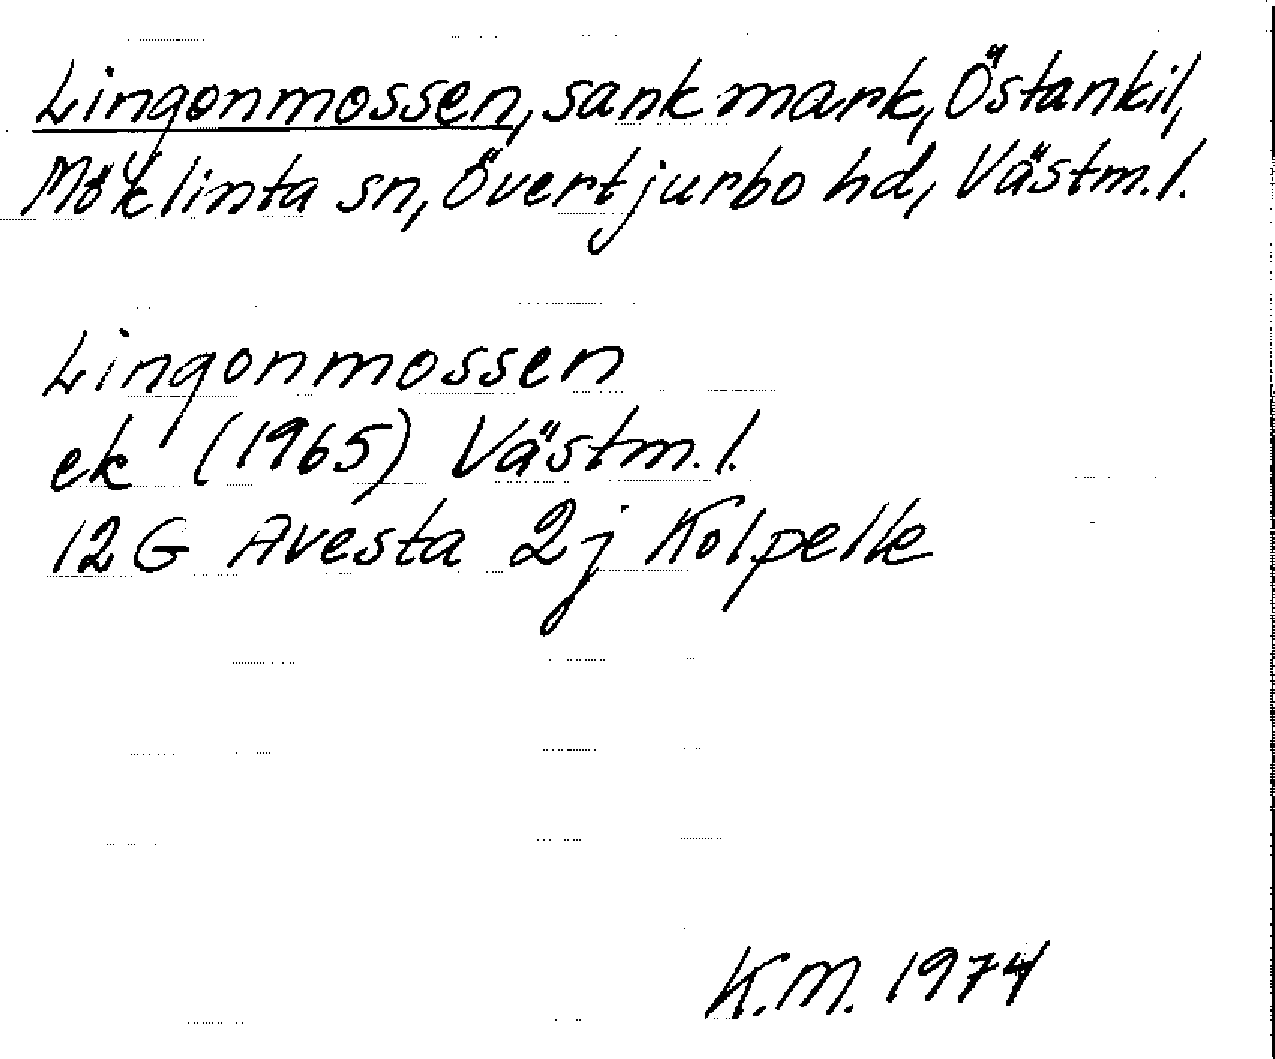 Lingonmossen, sankmark, Östankil,
Möklinta sn, Övertjurbo hd, Västm.l.
Lingonmossen
ek (1965) Västm.l.
12G Avesta 2j Kolpelle
K.M. 1974